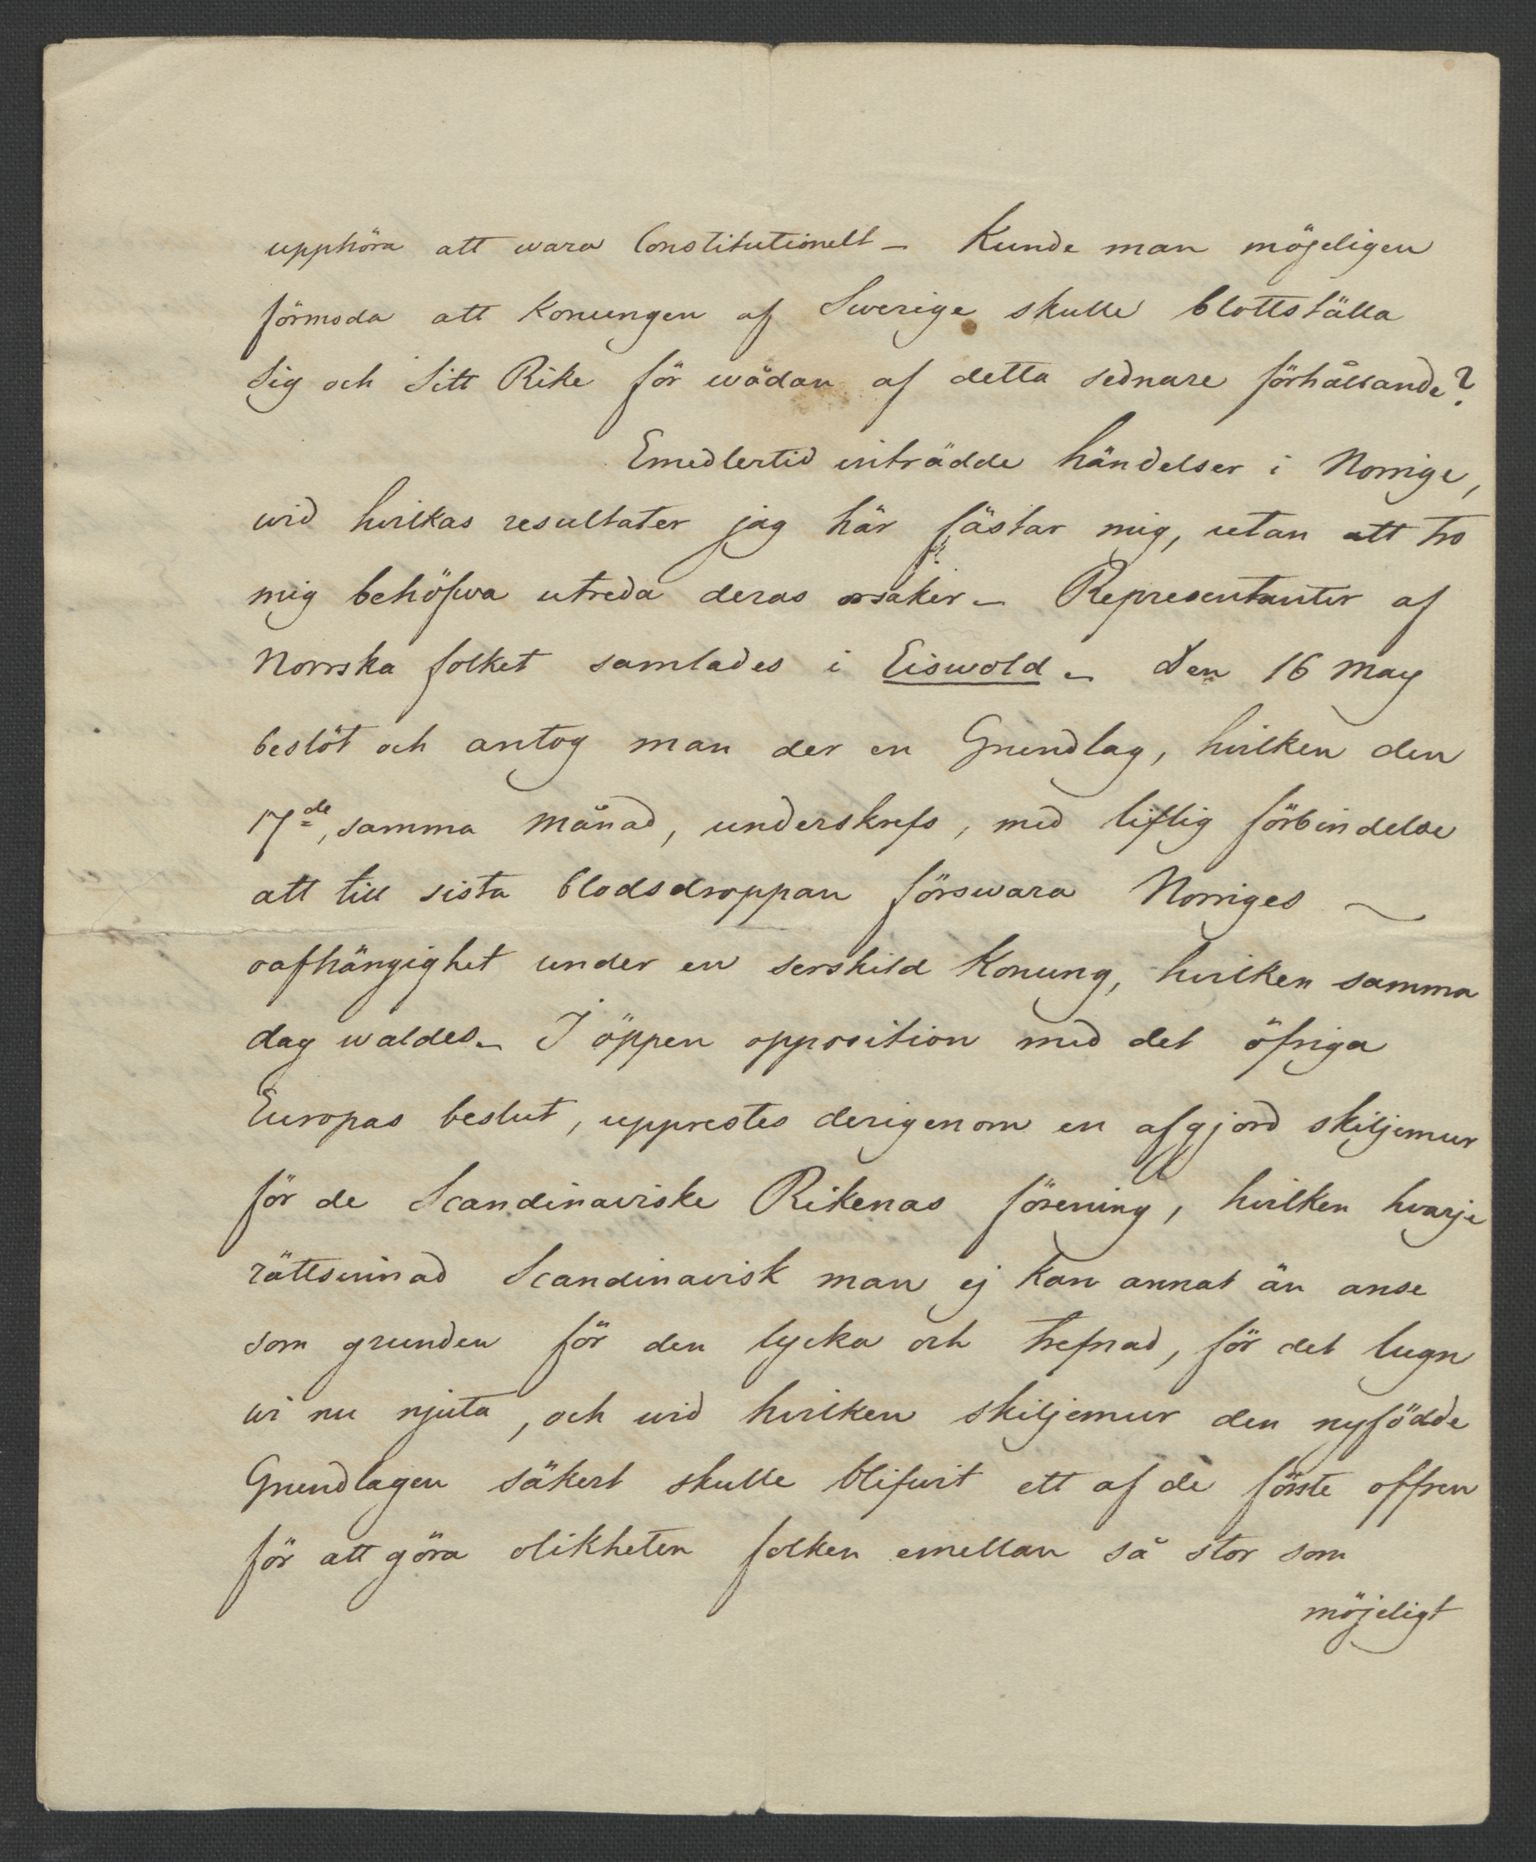 upphöra att wara Constitutionelt – Kunde man möjeligen
förmoda att Konungen af Swerige skulle blottställa
Sig och Sitt Rike för wådan af detta sednare förhållande?
Emedlertid inträdde händelser i Norrige,
wid hvilkas resultater jag här fästar mig, utan att tro
mig behöfwa utreda deras orsaker – Representanter af
Norrska folket samlades i Eiswold – Den 16 May
beslöt och antog man der en Grundlag, hvilken den
17de, samma Månad, underskrefs, med liflig förbindelse
att till sista blodsdroppan förswara Norriges –
oafhängighet under en serskild Konung, hvilken samma
dag waldes – I öppen opposition med det öfriga
Europas beslut, upprestes derigenom en afgjord skiljemur
för de Scandinaviske Rikenas förening, hvilken hvarje
rättsinnad Scandinavisk man ej kan annat än anse
som grunden för den lycka och trefnad, för det lugn
wi nu njuta, och wid hvilken skiljemur den nyfödde
Grundlagen säkert skulle blifwit ett af de förste offren
för att göra olikheten folken emellan så stor som
möjeligt